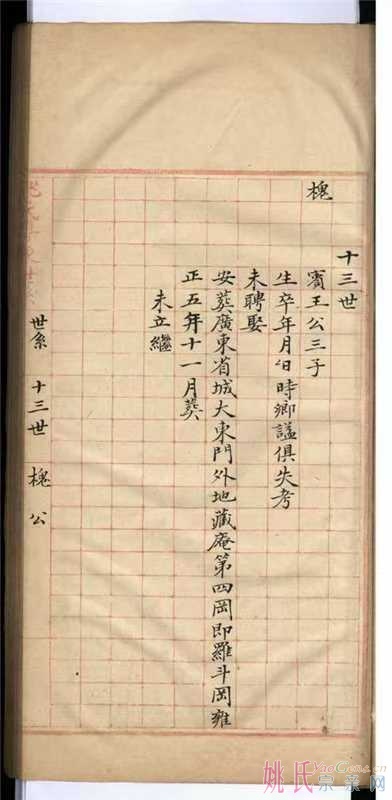 十三世
槐
賓王公三子
生卒年月日時鄉謚俱失考
未聘娶
安葬廣東省城大東門外地藏庵第四岡即羅斗岡雍
正五年十一月葬
未立繼
世系 十三世 槐公
姚氏宗亲网
YaoGens.cn